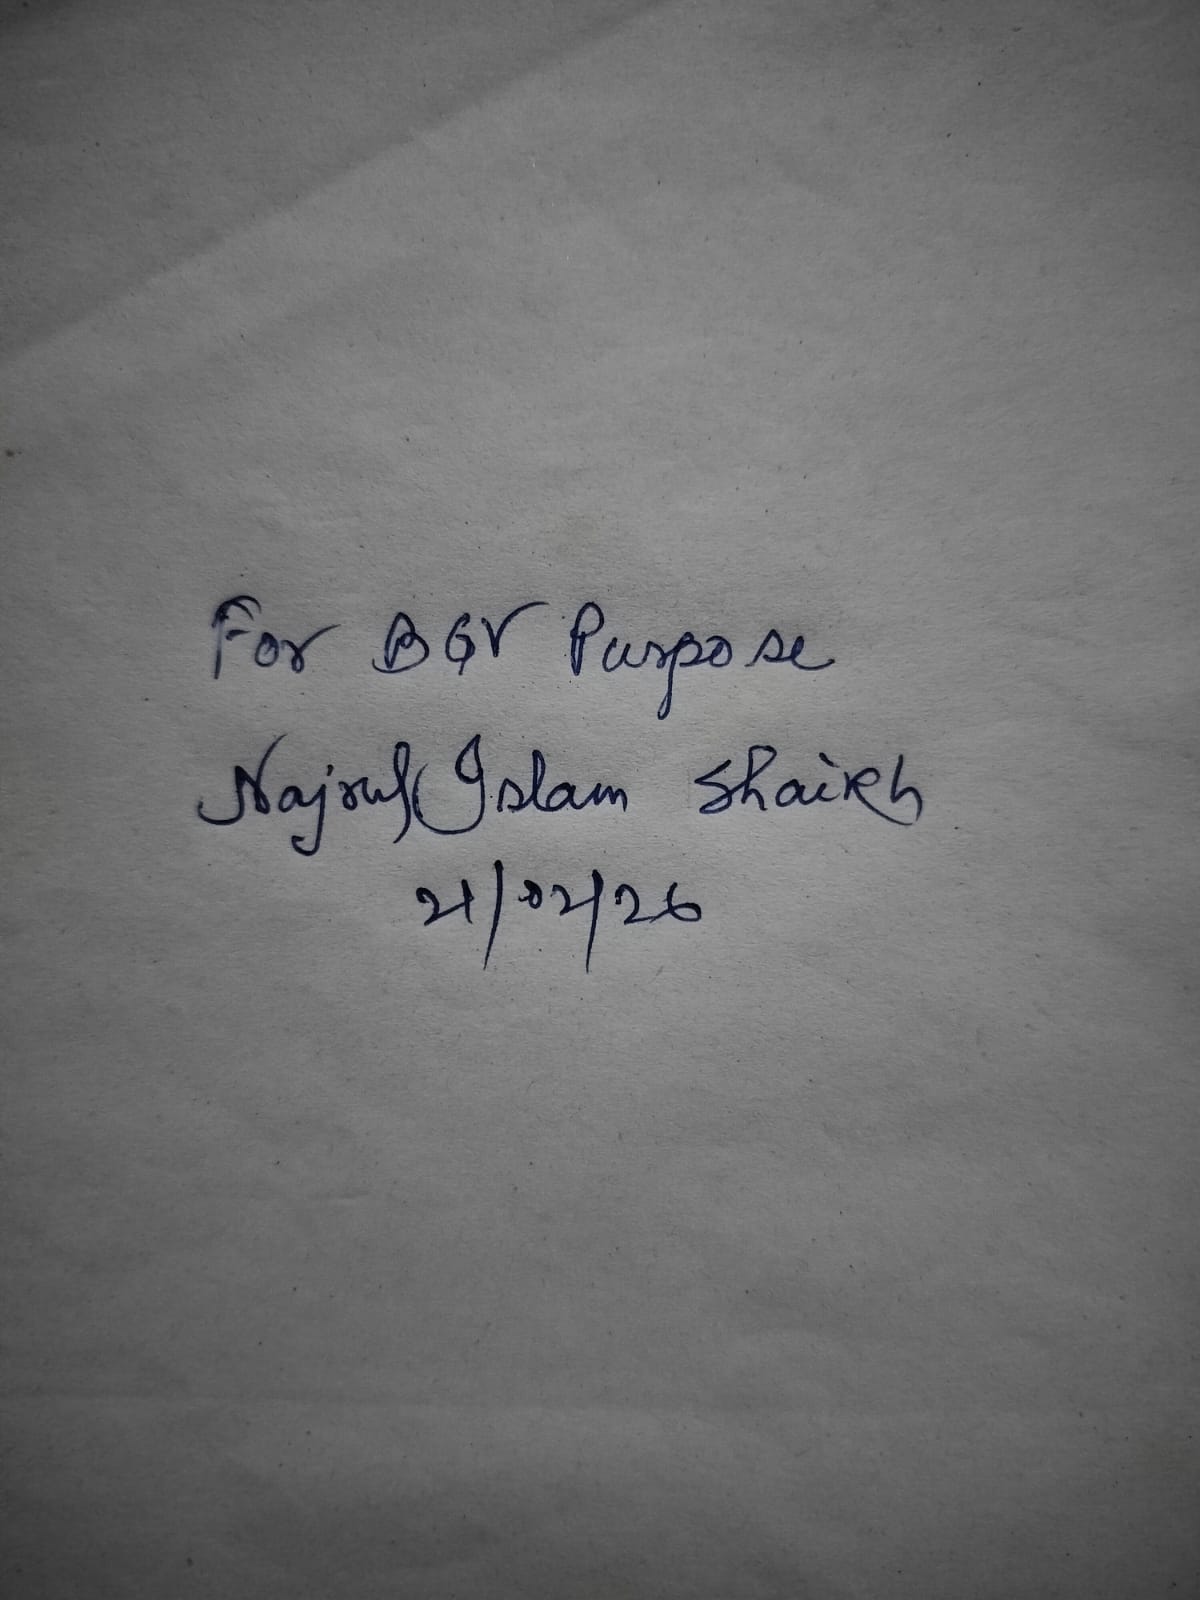 For BGV Purpose
Najrul Islam Shaikh
21/02/26